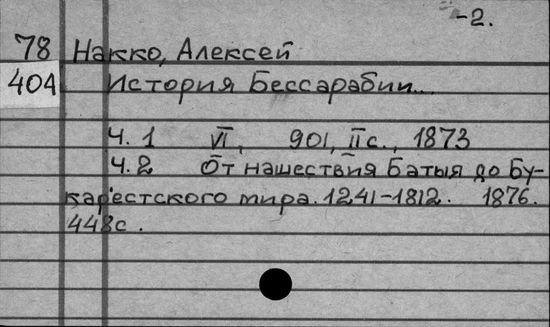 -2.
78 Накко, Алексей
404 История Бессарабии...
Ч. 1 VI, 901, II с., 1873
Ч. 2 От нашествия Батыя до Бу-
карестского мира. 1241-1812. 1876.
448с.